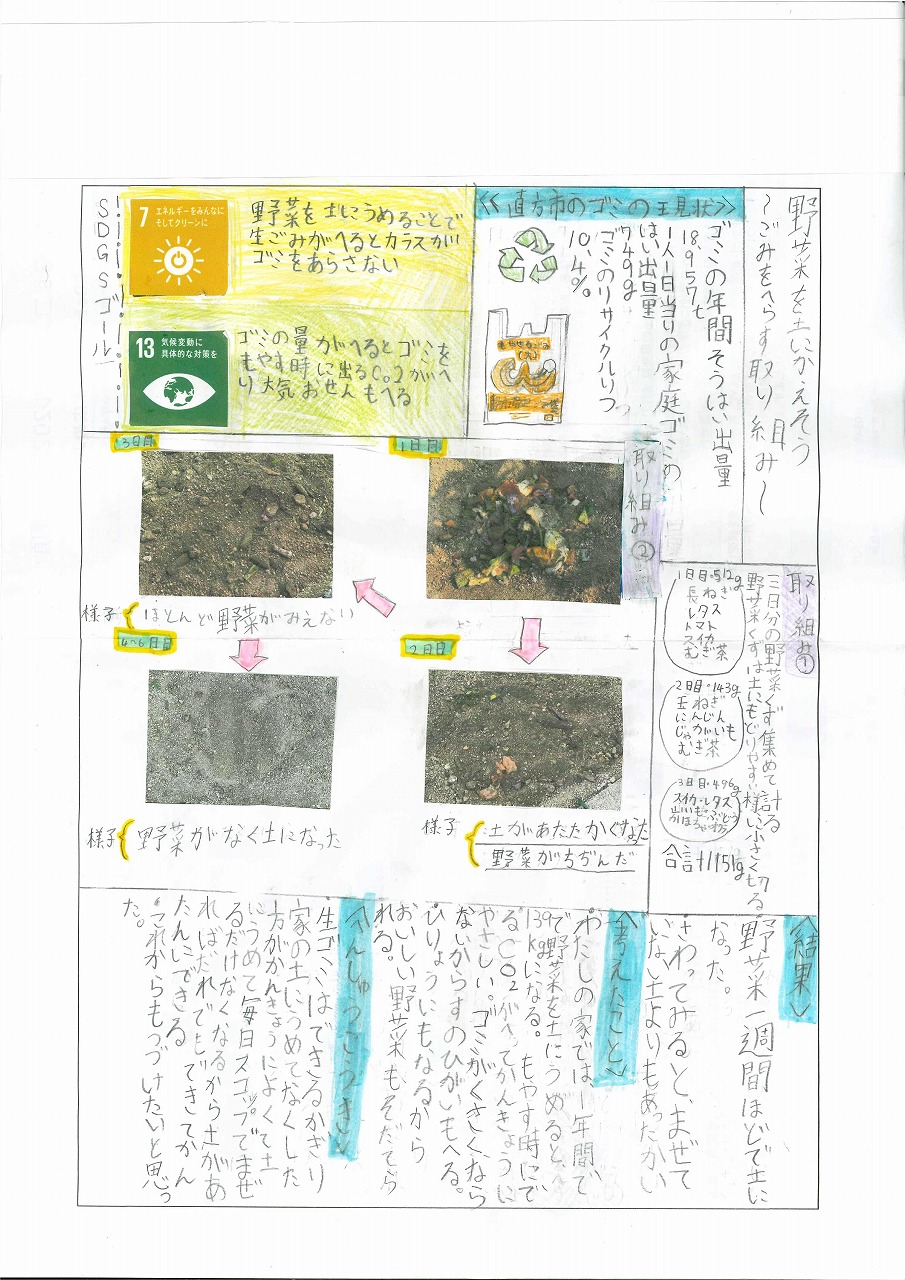 野菜を土にかえそう
〜ごみをへらす取り組み〜
《直方市のゴミの現状》
ゴミの年間そうはい出量
18,957t
1人1日当りの家庭ゴミの
はい出量
749g
ゴミのリサイクルりつ
10.4%
SDGSゴール
7 エネルギーをみんなに
そしてクリーンに
野菜を土にうめることで
生ごみがへるとカラスが
ゴミをあらさない
13 気候変動に
具体的な対策を
ゴミの量がへるとゴミを
もやす時に出るCo2がへ
り大気おせんもへる
取り組み①
三日分の野菜くず集めて計る
野菜くずは土にもどりやすい様に小さく切る
1日目・512g
長ねぎ
レタス
トマト
スイカ
むぎ茶
2日目・143g
玉ねぎ
にんじん
じゃがいも
むぎ茶
3日目・496g
スイカ・レタス
合計1151g
取り組み②
1日目
2日目
様子
土があたたかくなった
野菜がちぢんだ
3日目
様子
ほとんど野菜がみえない
4〜6日目
様子
野菜がなく土になった
〈結果〉
野菜一週間ほどで土に
なった。
さわってみると、まぜて
いない土よりもあったかい
〈考えたこと〉
わたしの家では、一年間で
139kgになる。もやす時にで
で野菜を土にうめると、へ
るCO2がへってかんきょうに
やさしい。ゴミがくさくなら
ないからすのひがいもへる。
ひりょうにもなるから
おいしい野菜もそだてら
れる。
〈へんしゅうこうき〉
生ゴミはできるかぎり
家の土にうめてなくした
方がかんきょうによくて土
にうめて毎日スコップでまぜ
るだけなくなるから土があ
ればだれでもできてかん
たんにできる
これからもつづけたいと思っ
た。